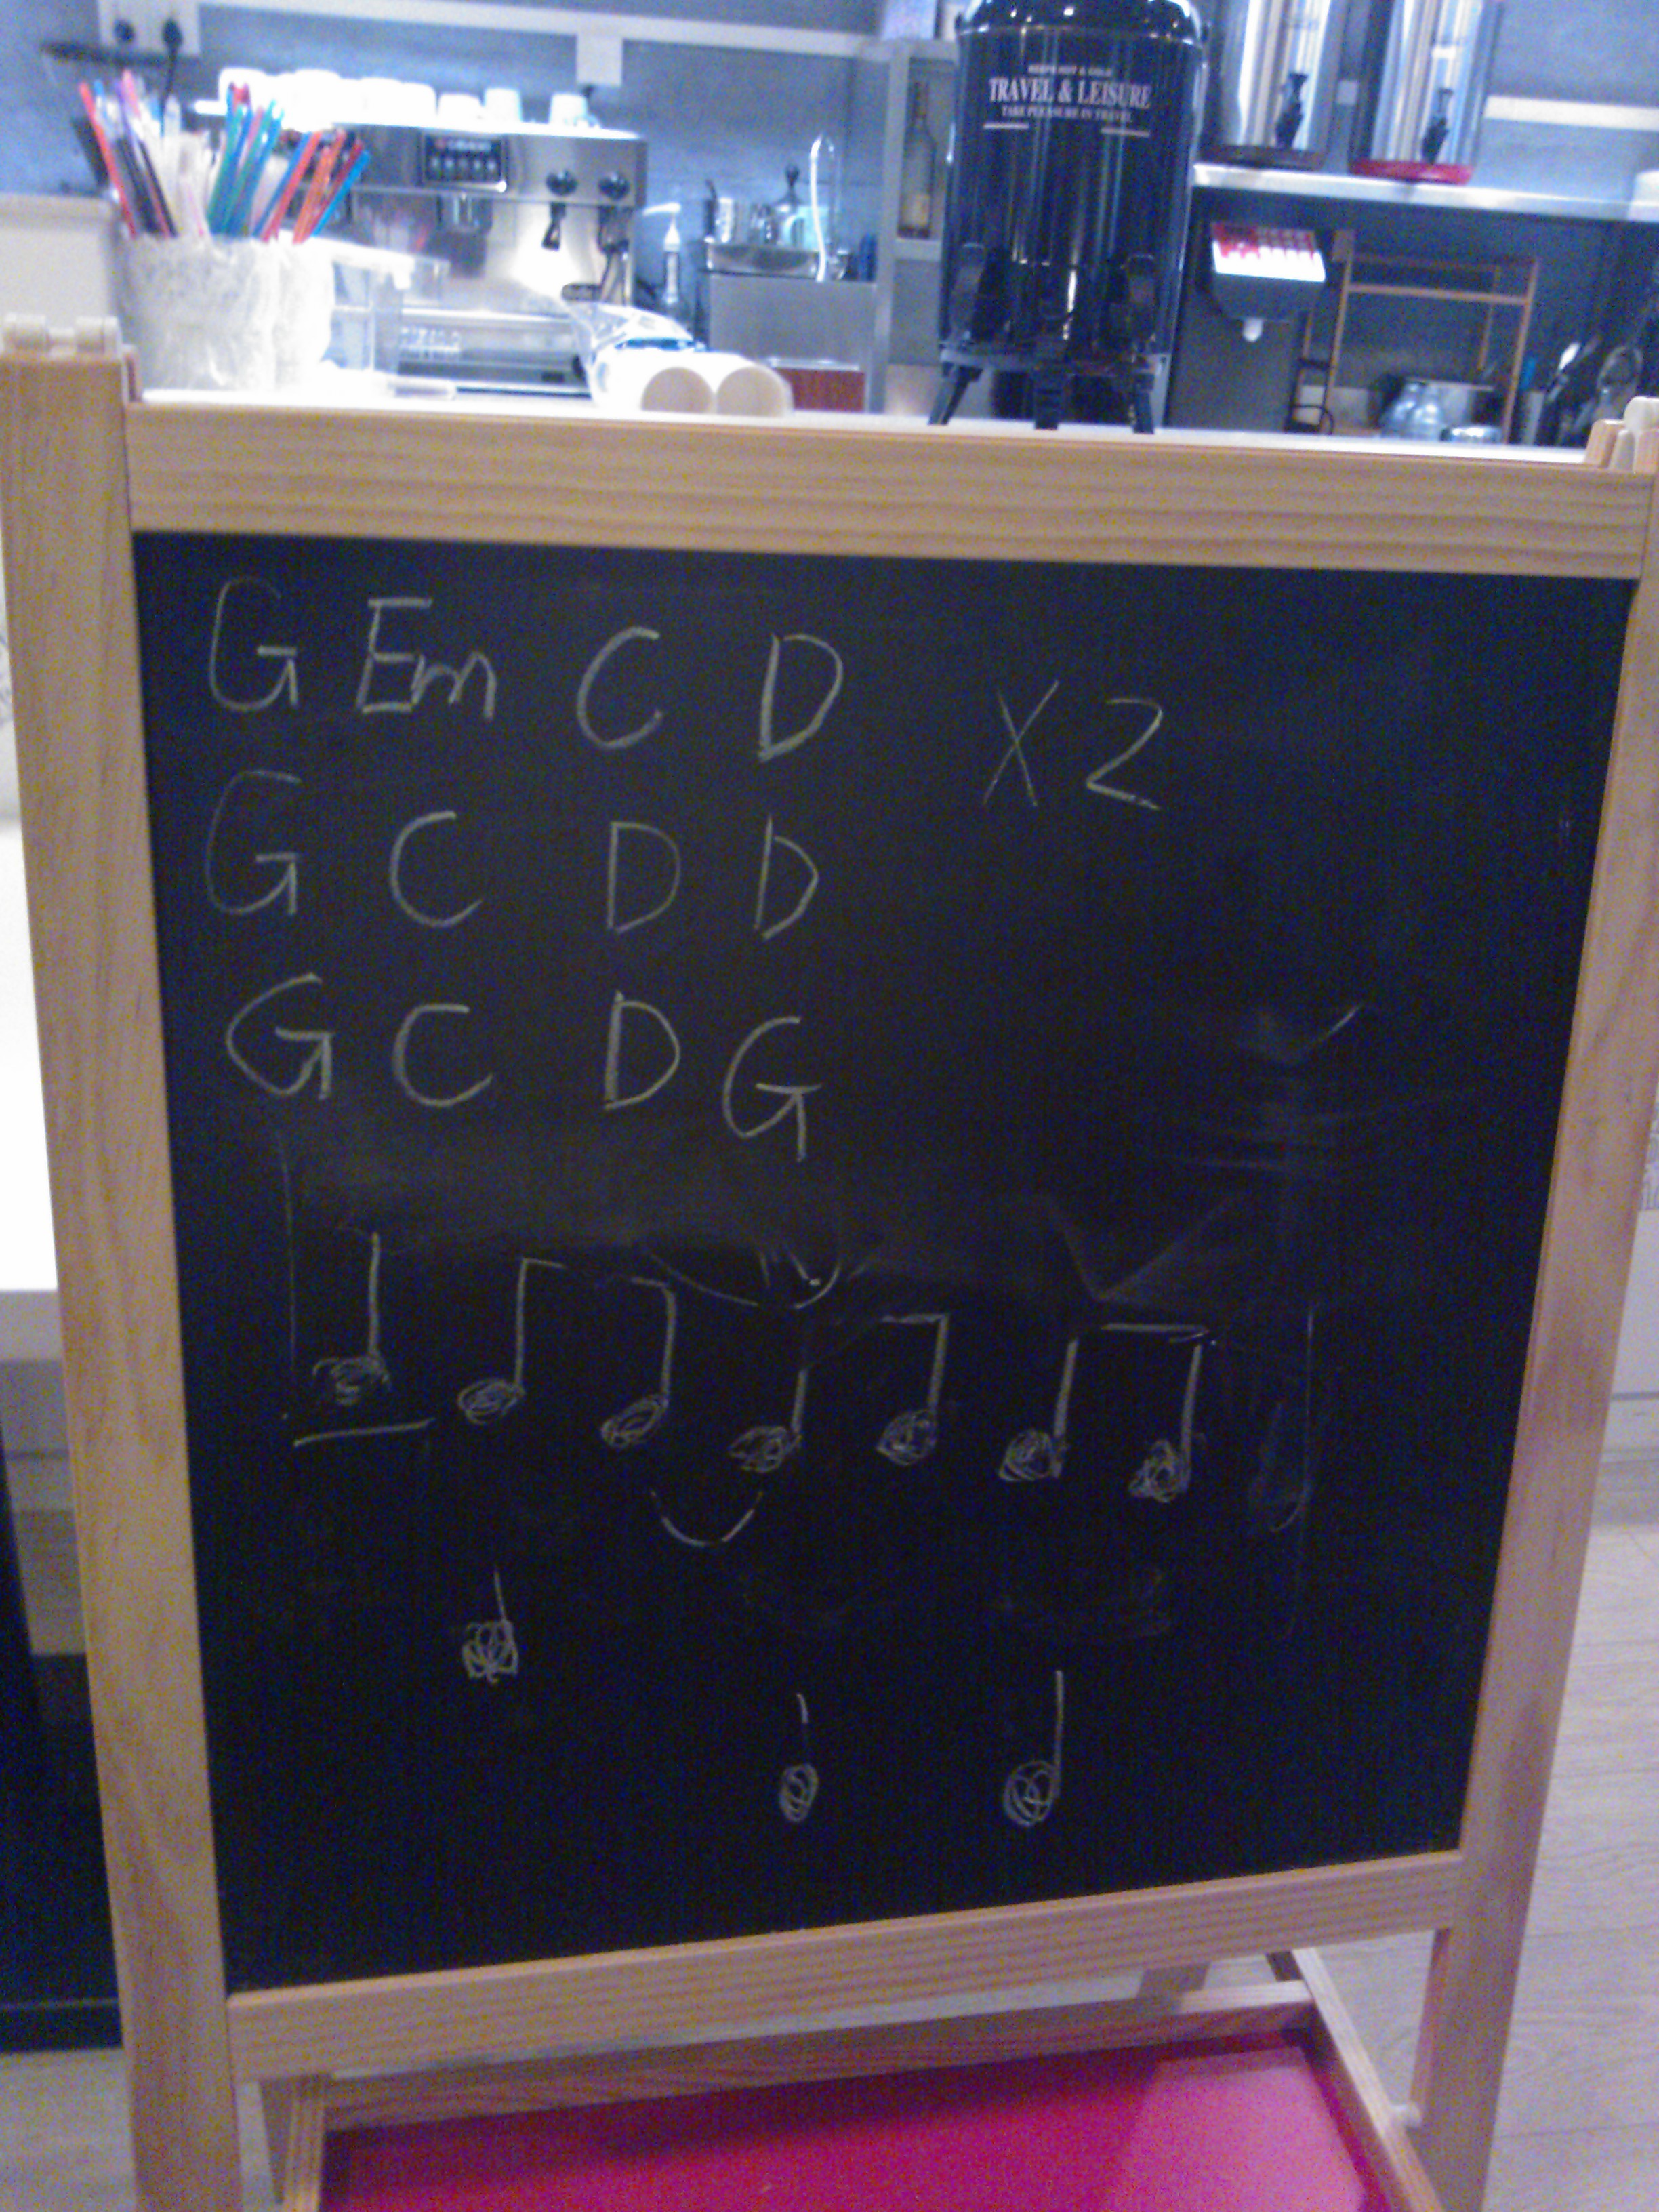 KEEPS HOT & COLD
TRAVEL & LEISURE
TAKE PLEASURE IN TRAVEL
G Em C D X2
G C D D
G C D G